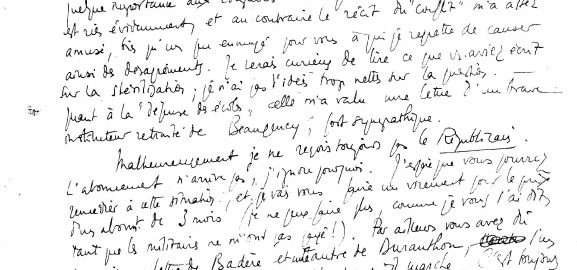 quelque importance aux
est très évidemment, et au contraire le récit du "conflit" m'a assez
amusé, bien qu'un peu ennuyé pour vous à qui je regrette de causer
ainsi des désagréments. Je serais curieux de lire ce que vs. aviez écrit
sur la stérilisation; je n'ai pas l'idée trop nette sur la question.
Quant à la "défense des écoles" elle m'a valu une lettre d'un brave
instituteur retraité de Beaugency, fort sympathique.
Malheureusement je ne reçois toujours pas le Républicain.
L'abonnement n'arrive pas, j'ignore pourquoi. J'espère que vous pourrez
remédier à cette situation, et je vais vous faire un virement pour le prix
d'un abont de 3 mois (je ne peux faire plus, comme je vous l'ai dit,
tant que les militaires ne m'ont pas payé!). Par ailleurs vous avez dû
lettre de Badère et une autre de Duranthon, l'un
marche. C'est toujours